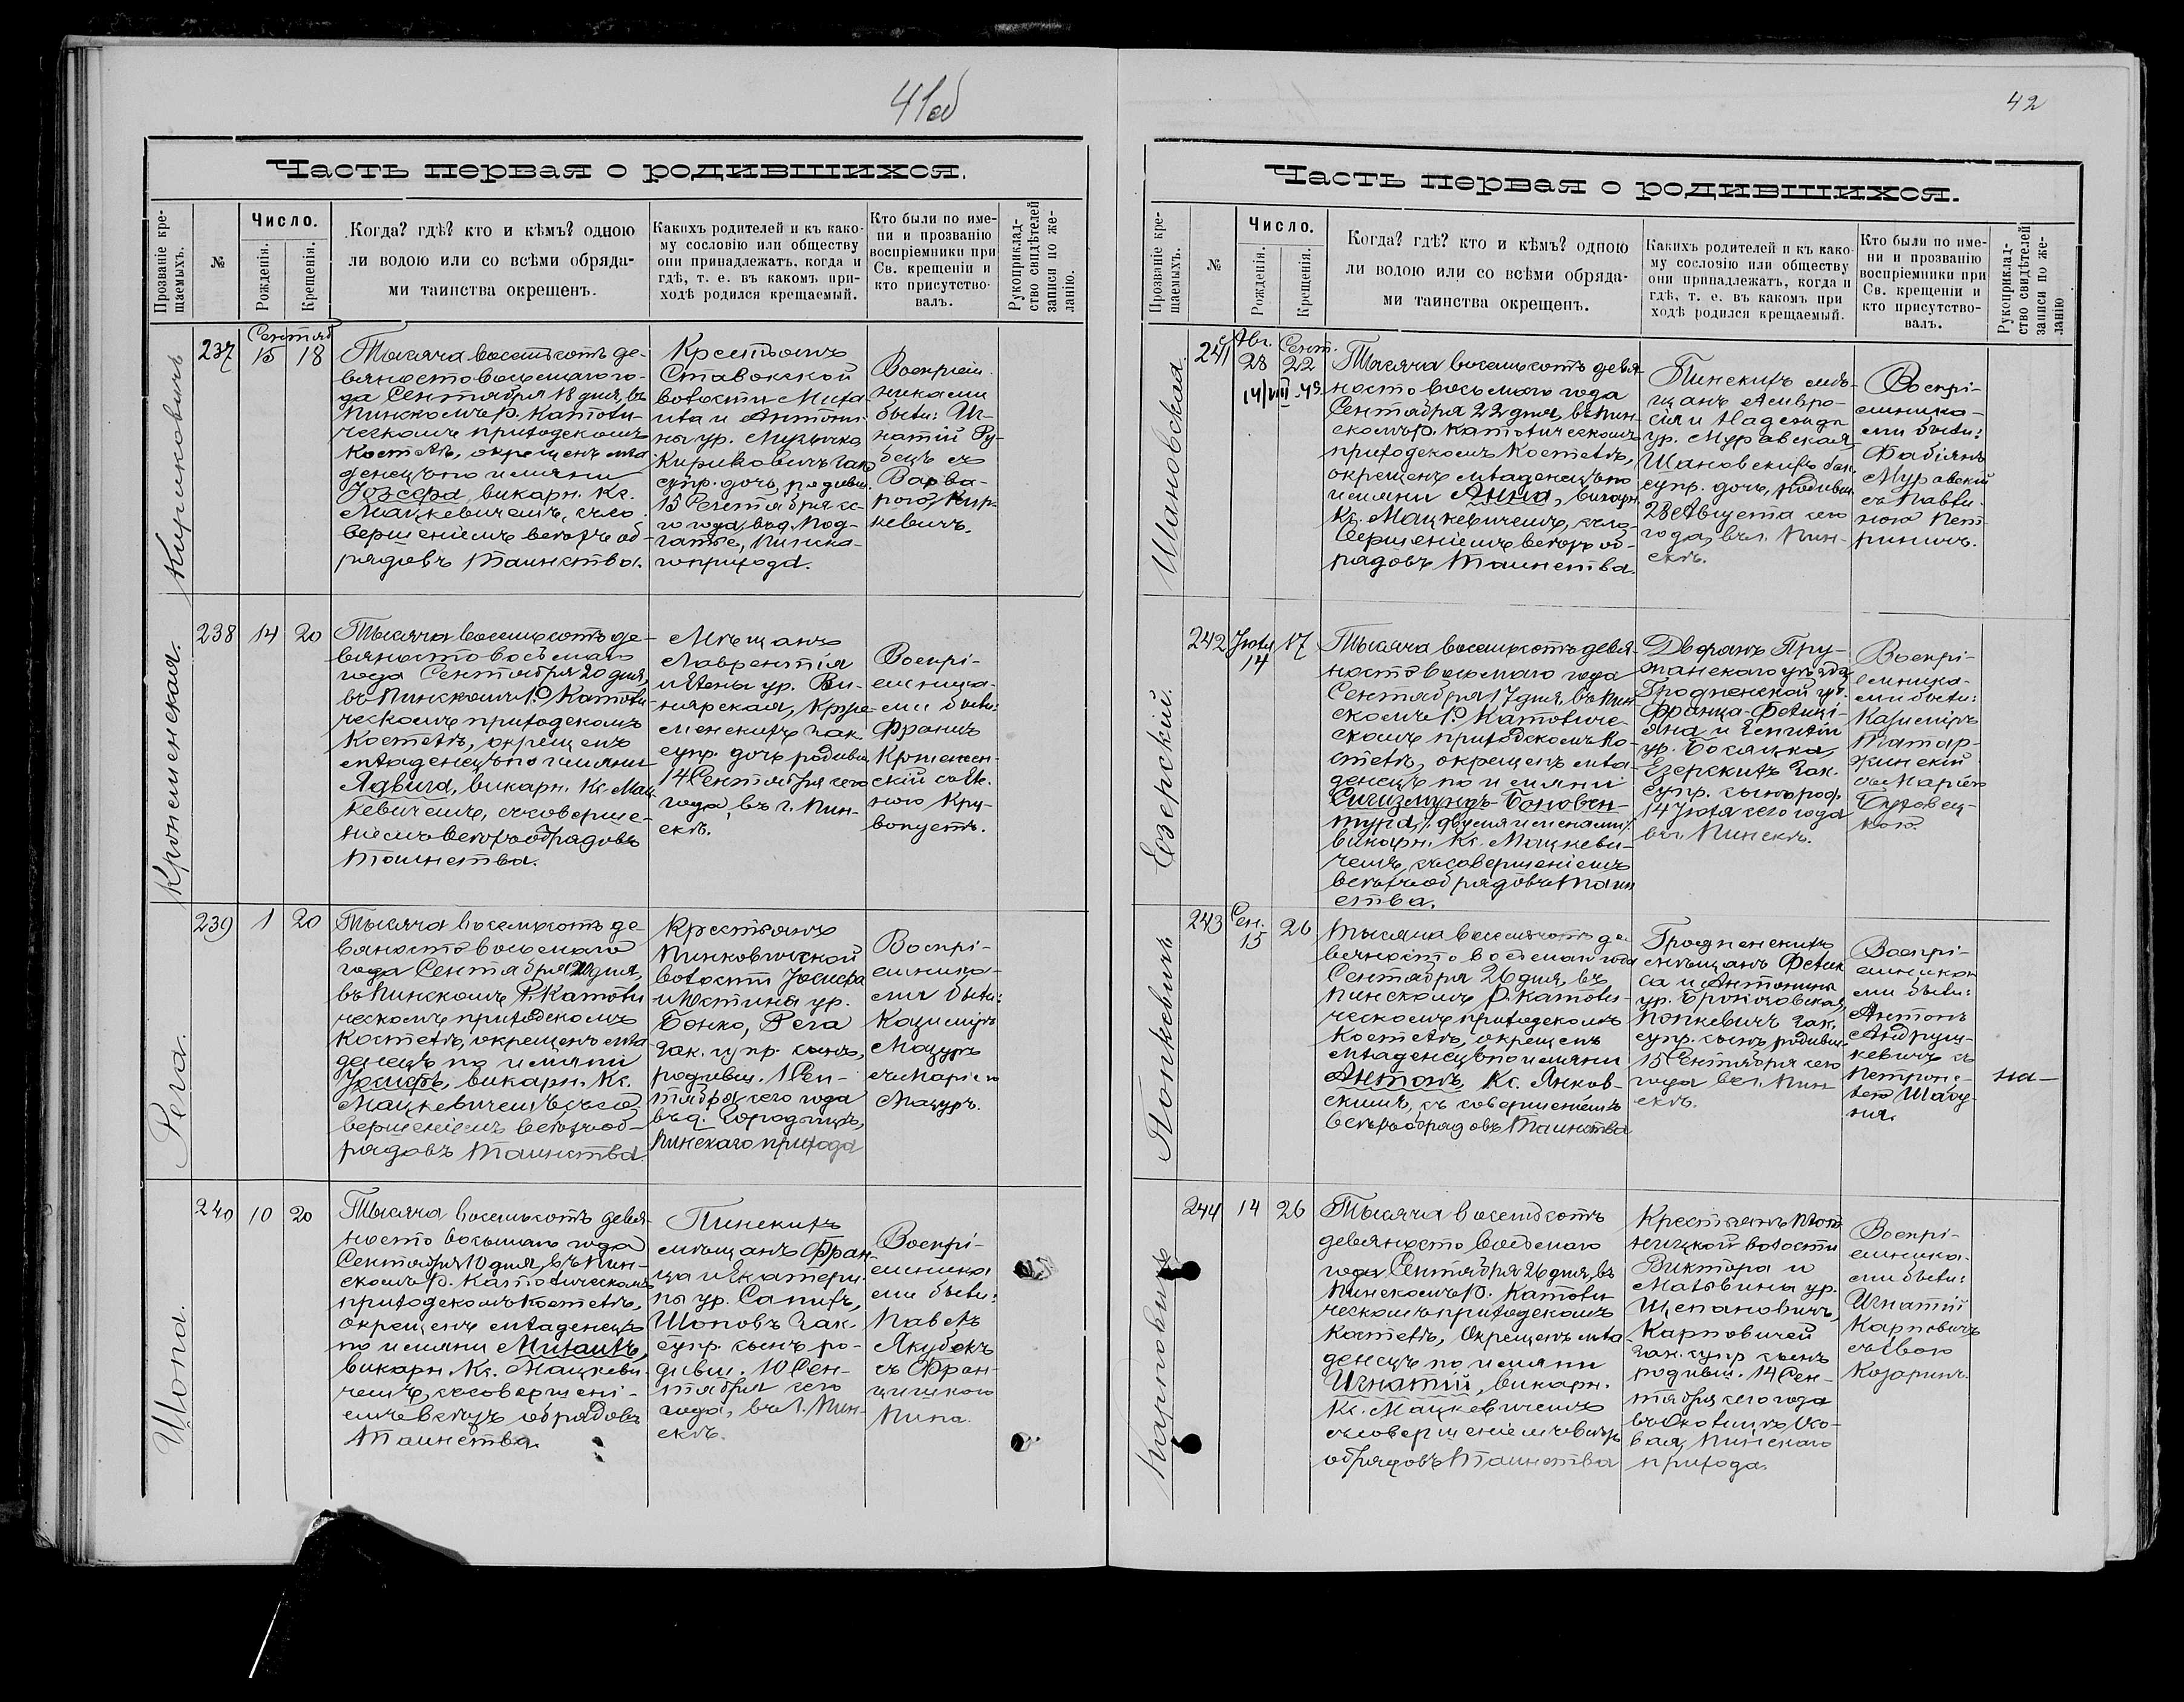 41об
Часть первая о родившихся.
Прозваніе кре-
щаемыхъ.
№
Число.
Рожденія.
Крещенія.
Когда? гдѣ? кто и кѣмъ? одною
ли водою или со всѣми обряда-
ми таинства окрещенъ.
Какихъ родителей и къ како-
му сословію или обществу
они принадлежатъ, когда и
гдѣ, т. е. въ какомъ при-
ходѣ родился крещаемый.
Кто были по име-
ни и прозванію
воспріемники при
Св. крещеніи и
кто присутство-
валъ.
Рукоприклад-
ство свидѣтелей
записи по же-
ланію.
Кириковичъ
237
Сентяб
15 18
Тысяча восемьсотъ де-
вяносто восьмого го-
да Сентября 18 дня, въ
Пинскомъ Р. Католи-
ческомъ приходскомъ
Костелѣ, окрещенъ мла
денецъ по имяни
Іозефа, викарн. Кс.
Мацкевичемъ, съ со
вершеніемъ всѣхъ об-
рядовъ Таинства.
Крестьянъ
Ставокской
волости Миха
ила и Антони-
ны ур.
Кириковичъ зак
супр. дочь, родивш.
15 Сентября се-
го года, въ д. Под-
гатье, Пинска-
го прихода.
Воспріем
никами
были: Иг-
натій Ру-
бецъ съ
Варва-
рою Кир-
кевичъ.
Кронеменская.
238
14 20
Тысяча восемьсотъ де-
вяносто восьмаго
года Сентября 20 дня,
въ Пинскомъ Р. Католи
ческомъ приходскомъ
Костелѣ, окрещенъ
младенецъ по имяни
Ядвига, викарн. Кс. Мац
кевичемъ, съ соверше-
ніемъ всѣхъ обрядовъ
Таинства.
Мѣщанъ
Лаврентія
и Елены ур. Ви-
нярская, Кроне-
менскихъ зак.
супр. дочь родивш
14 Сентября сего
года, въ г. Пин-
скѣ.
Воспрі-
емника-
ми были:
Францъ
Кронемен-
скій съ Еле-
ною Кру-
вопустъ.
Рега.
239
1 20
Тысяча восемьсотъ де-
вяносто восьмаго
года Сентября 20 дня,
въ Пинскомъ Р. Католи
ческомъ приходскомъ
Костелѣ, окрещенъ мла
денецъ по имяни
Іосифъ, викарн. Кс.
Мацкевичемъ, съ со
вершеніемъ всѣхъ об-
рядовъ Таинства.
Крестьянъ
Пинковичской
волости Іосифа
и Юстины ур.
Бонко, Рега
зак. супр. сынъ,
родивш. 1 Сен-
тября сего года
въ д. Городище,
Пинскаго прихода
Воспрі-
емника-
ми были:
Казиміръ
Мазуръ
съ Маріею
Мазуръ.
Шопа.
240
10 20
Тысяча восемьсотъ девя-
носто восьмаго года
Сентября 10 дня, въ Пин-
скомъ Р. Католическомъ
приходскомъ Костелѣ,
окрещенъ младенецъ
по имяни Михаилъ,
викарн. Кс. Мацкеви-
чемъ, съ совершені-
емъ всѣхъ обрядовъ
Таинства.
Пинскихъ
мѣщанъ Фран-
ца и Екатери-
ны ур. Сапихъ,
Шоповъ зак.
супр. сынъ ро-
дивш. 10 Сен-
тября сего
года, въ г. Пин-
скѣ.
Воспрі-
емника
ми были:
Павелъ
Якубокъ
съ Фран-
цишкою
Пипа.
42
Часть первая о родившихся.
Прозваніе кре-
щаемыхъ.
№
Число.
Рожденія.
Крещенія.
Когда? гдѣ? кто и кѣмъ? одною
ли водою или со всѣми обряда-
ми таинства окрещенъ.
Какихъ родителей и къ како-
му сословію или обществу
они принадлежатъ, когда и
гдѣ, т. е. въ какомъ при
ходѣ родился крещаемый.
Кто были по име-
ни и прозванію
воспріемники при
Св. крещеніи и
кто присутство-
валъ.
Рукоприклад-
ство свидѣтелей
записи по же-
ланію
Шановская.
241
Авг. Сент.
28 22
14/VIII-49.
Тысяча восемьсотъ девя
носто восьмого года
Сентября 22 дня, въ Пин-
скомъ Р. Католическомъ
приходскомъ Костелѣ,
окрещенъ младенецъ по
имяни Анна, викарн.
Кс. Мацкевичемъ, съ со-
вершеніемъ всѣхъ об-
рядовъ Таинства.
Пинскихъ мѣ-
щанъ Амвро-
сія и Надежды
ур. Муравская
Шановскихъ зак.
супр. дочь, родивш.
28 Августа сего
года, въ г. Пин-
скѣ.
Воспрі-
емника-
ми были:
Фабіянъ
Муравскій
съ Павли-
ною Пет-
риничъ.
Езерскій.
242
Іюля
14 17
Тысяча восемьсотъ девя-
носто восьмого года
Сентября 17 дня, въ Пин
скомъ Р. Католиче-
скомъ приходскомъ Ко-
стелѣ, окрещенъ мла-
денецъ по имяни
Сигизмундъ-Бонавен-
тура, /: двумя именами:/
викарн. Кс. Мацкеви-
чемъ, съ совершеніемъ
всѣхъ обрядовъ Таин
ства.
Дворянъ Пру-
жанскаго уѣзда
Гродненской губ.
Франца-Фелиці-
яна и
ур.
Езерскихъ зак.
супр. сынъ род.
14 Іюля сего года
въ г. Пинскѣ.
Воспрі-
емника-
ми были:
Казиміръ
Татар-
жинскій
съ Маріею
Буховец-
кою.
Попкевичъ
243
Сен.
15 26
Тысяча восемьсотъ де
вяносто восьмаго года
Сентября 26 дня, въ
Пинскомъ Р. Католи-
ческомъ приходскомъ
Костелѣ, окрещенъ
младенецъ по имяни
Антонъ, Кс. Янков-
скимъ, съ совершеніемъ
всѣхъ обрядовъ Таинства
Гродненскихъ
мѣщанъ Феликса
са и Антонины
ур.
Попкевичъ зак.
супр. сынъ родивш.
15 Сентября сего
года въ г. Пин
скѣ.
Воспрі-
емника
ми были:
Антонъ
Андруш-
кевичъ съ
Петроне-
лею Шабу-
ня.
Карповичъ
244
14 26
Тысяча восемьсотъ
девяносто восьмаго
года Сентября 26 дня, въ
Пинскомъ Р. Католи
ческомъ приходскомъ
Костелѣ, Окрещенъ мла
денецъ по имяни
Игнатій, викарн.
Кс. Мацкевичемъ
съ совершеніемъ всѣхъ
обрядовъ Таинства
Крестьянъ Плот
ницкой волости
Виктора и
Мальвины ур.
Щепановичъ,
Карповичей
зак. супр. сынъ
родивш. 14 Сен-
тября сего года
въ Околицѣ Осо-
вая, Пинскаго
прихода.
Воспрі-
емника-
ми были:
Игнатій
Карповичъ
съ Евою
Козаринъ.